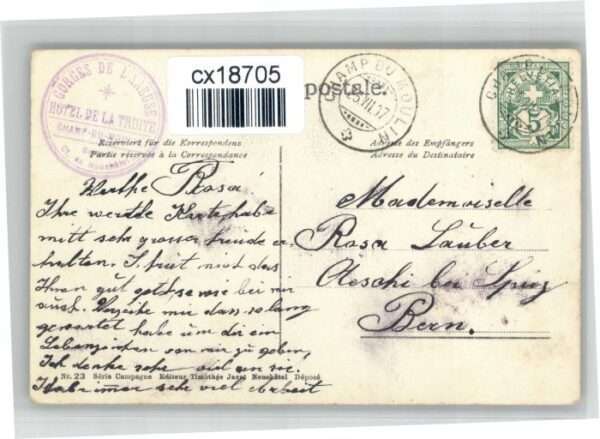 GORGES DE L'AREUSE
HÔTEL DE LA TRUITE
CHAMP-DU-MOULIN
cx18705
postale.
CHAMP DU MOULIN
HELVETIA
5
Reserviert für die Korrespondenz
Partie réservée à la Correspondance
Adresse des Empfängers
Adresse du Destinataire
Werthe Rosa!
Ihre werthe Karte habe
mitt sehr grosser freude er-
halten. I. freut mich das
Ihnen gut geht so wie bei mir
auch. Verzeihe mir dass so lang
gewartet habe um dir ein
Lebenzeichen von mir zu geben,
Ich denke sehr viel an
Habe immer sehr viel Arbeit
Mademoiselle
Rosa Lauber
Aeschi bei Spiez
Bern.
Nr. 23 Séria Campagne Editeur Timothée Jacot Neuchâtel Déposé